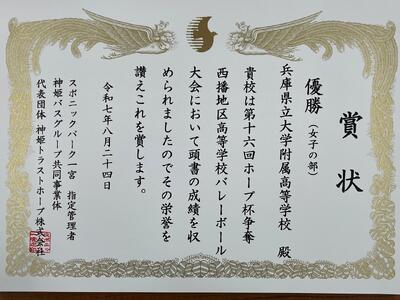 賞状
優勝（女子の部）
兵庫県立大学附属高等学校 殿
貴校は第十六回ホープ杯争奪
西播地区高等学校バレーボール
大会において頭書の成績を収
められましたのでその栄誉を
讃えこれを賞します。
令和七年八月二十四日
スポニックパーク一宮 指定管理者
神姫バスグループ共同事業体
代表団体 神姫トラストホープ株式会社